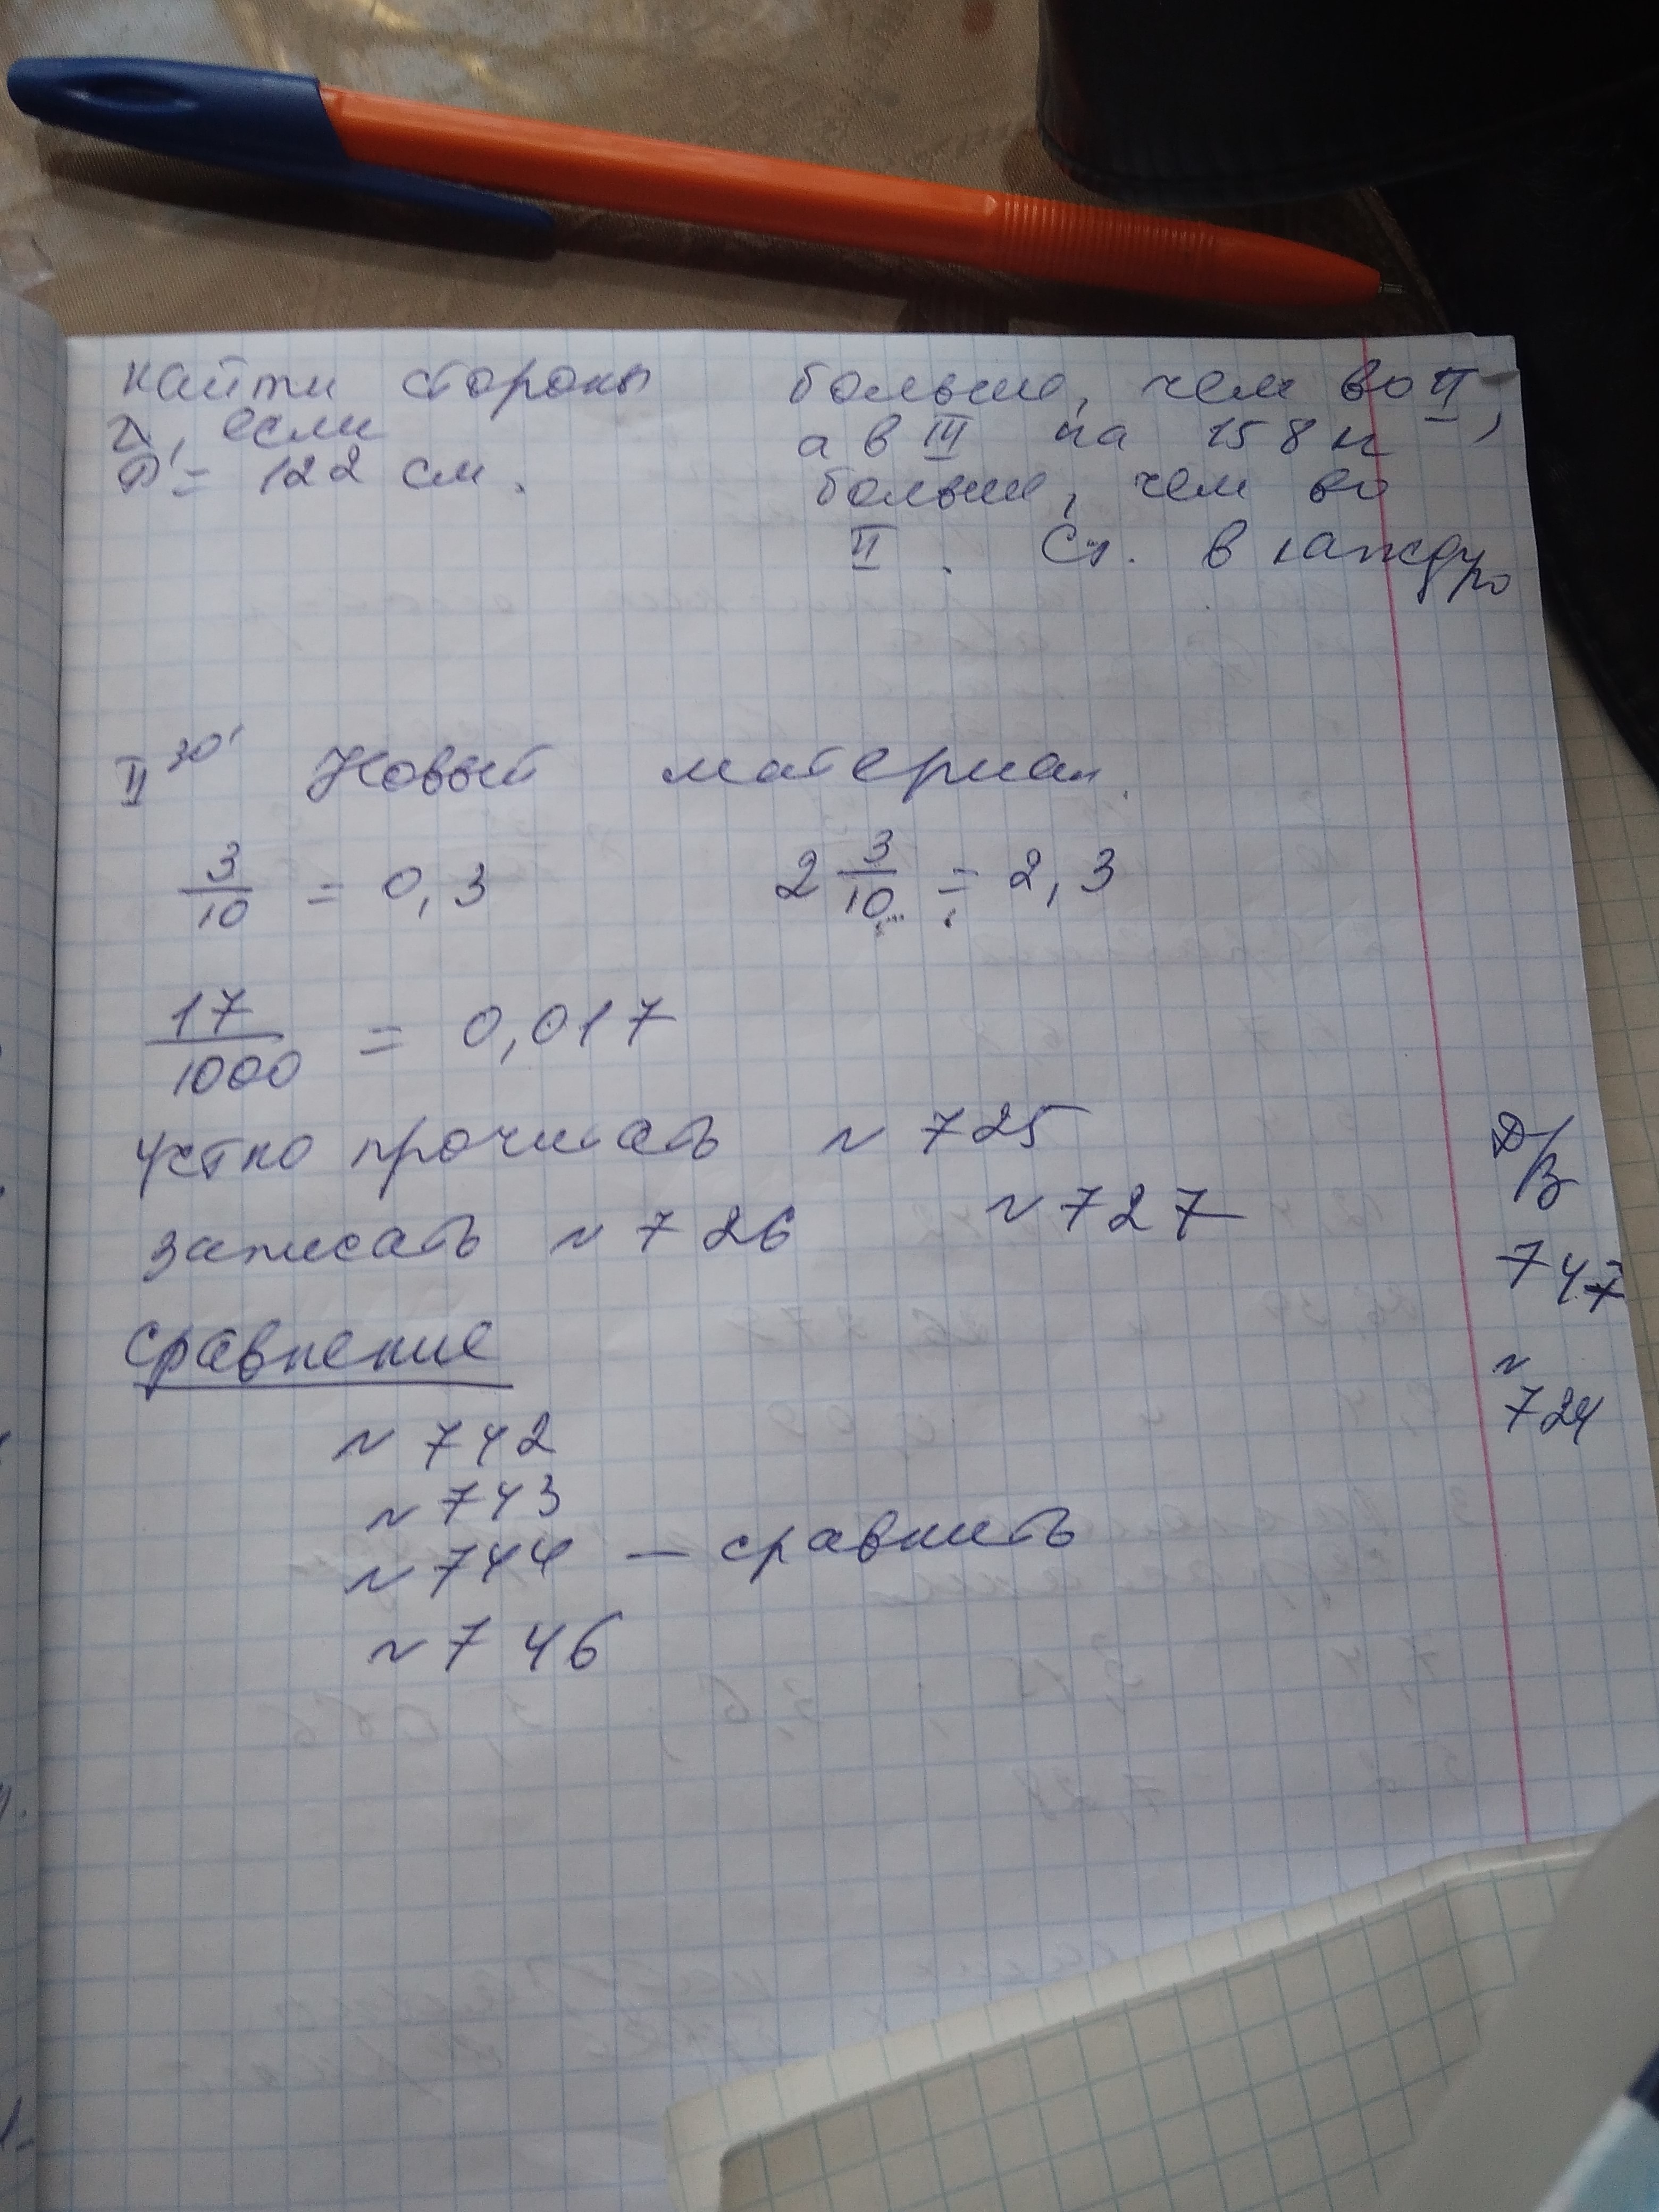 найти стороны
△, если
P = 122 см.
больше, чем во II,
а в III на 158 н
больше, чем во
II. Ск. в каждую
II 30' Новый материал.
3/10 = 0,3
2 3/10 = 2,3
17/1000 = 0,017
устно прочитать № 725
записать № 726 № 727
Сравнение
№ 742
№ 743
№ 744 — сравнить
№ 746
Д/з
747
№
724